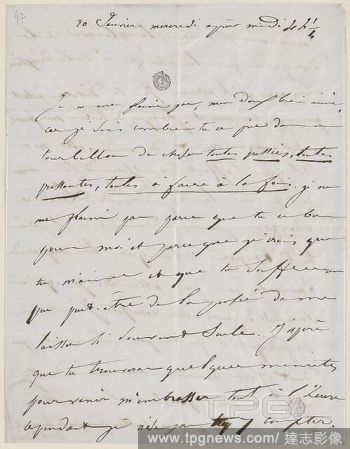 47
20 Janvier mercredi après midi 4 h ¼
Je ne me plains pas, mon doux bien aimé,
car je sais combien tu es pris dans un
tourbillon de choses toutes pressées, toutes
pressantes, toutes à faire à la fois, je ne
me plains pas parce que tu es bon
pour moi et parce que je crois que
tu m'aimes et que tu souffres un
peu peut-être de la pensée de me
laisser si souvent seule. J'espère
que tu trouveras quelques minutes
pour venir m'embrasser tout à l'heure
cependant je n'ose pas trop y compter,
TPG
www.tpgnews.com / 達志影像